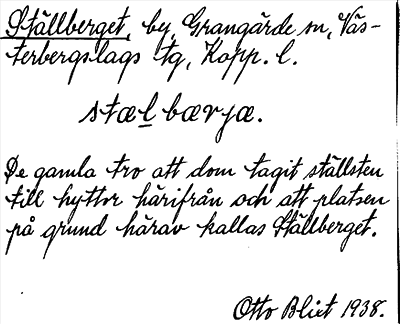 Ställberget, by, Grangärde sn, Väs-
terbergslags tg, Kopp. l.
stælbærjæ.
De gamla tro att dom tagit ställsten
till hyttor härifrån och att platsen
på grund härav kallas Ställberget.
Otto Blixt 1938.